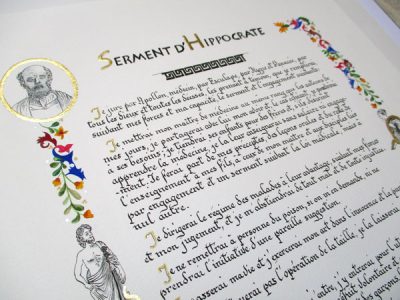 SERMENT D'HIPPOCRATE
Je jure par Apollon, médecin, par Esculape, par Hygie et Panacée, par
tous les dieux et toutes les déesses, les prenant à témoin, que je remplirai,
suivant mes forces et ma capacité, le serment et l'engagement suivants :
Je mettrai mon maître de médecine au même rang que les auteurs de
mes jours, je partagerai avec lui mon avoir et, le cas échéant, je pourvoirai
à ses besoins; je tiendrai ses enfants pour des frères et, s'ils désirent
apprendre la médecine, je la leur enseignerai sans salaire ni engage-
ment. Je ferai part de mes préceptes, des leçons orales et du reste de
l'enseignement à mes fils, à ceux de mon maître et aux disciples liés
par engagement et un serment suivant la loi médicale, mais à
nul autre.
Je dirigerai le régime des malades à leur avantage, suivant mes forces
et mon jugement, et je m'abstiendrai de tout mal et de toute injustice.
Je ne remettrai à personne du poison, si on m'en demande, ni ne
prendrai l'initiative d'une pareille suggestion
passerai ma vie et j'exercerai mon art dans l'innocence et la pureté
pas l'opération de la taille, je la laisserai
j'entre, j'y entrerai pour l'utilité
volontaire et